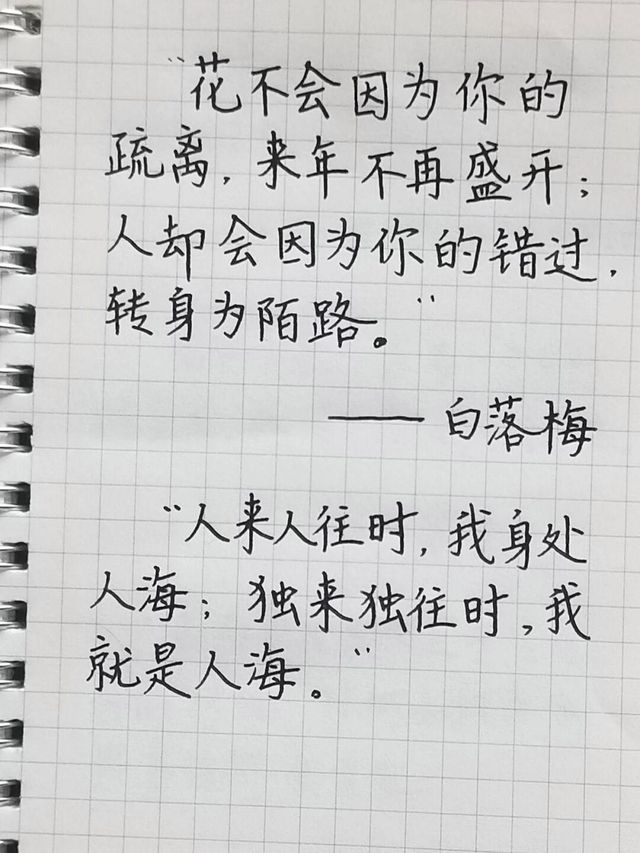 “花不会因为你的
疏离，来年不再盛开；
人却会因为你的错过，
转身为陌路。”
——白落梅
“人来人往时，我身处
人海；独来独往时，我
就是人海。”